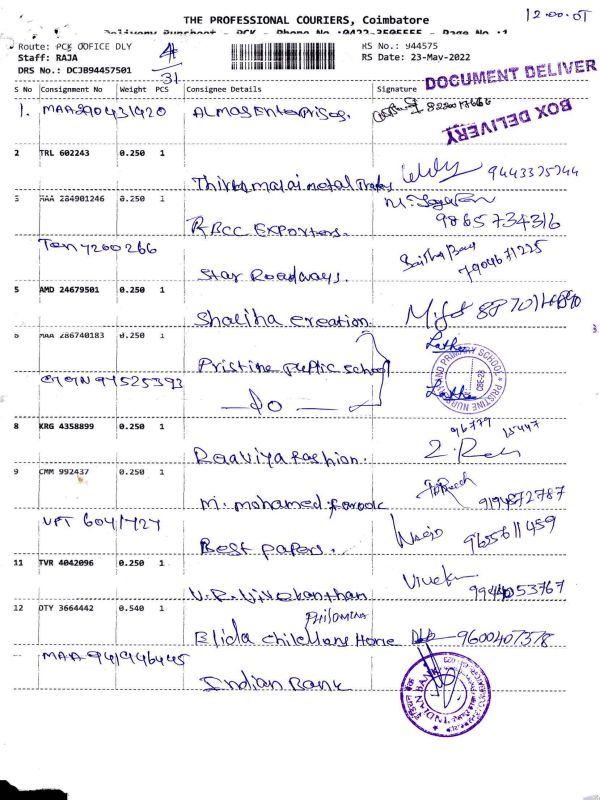 THE PROFESSIONAL COURIERS, Coimbatore
Delivery Runsheet - PCK - Phone No :0422-3505555 - Page No :1
12.00.01
Route: PCK OOFICE DLY
Staff: RAJA
DRS No.: DCJB94457501
4/31
RS No.: 944575
RS Date: 23-May-2022
DOCUMENT DELIVER
BOX DELIVERY
S No Consignment No Weight PCS Consignee Details Signature
1. MAA290431920 ALMAS Enterprises.
2 TRL 602243 0.250 1
Thirumalai metal Traders 9443375744
3 MAA 284901246 0.250 1
RBCC Exporters. 9865734316
Ten 7200266
Star Roadways. 7904671225
5 AMD 24679501 0.250 1
Shaliha creation.
6 MAA 286740183 0.250 1
Pristine public school Latha
—do— Latha
PRISTINE NURSERY AND PRIMARY SCHOOL
CBE-28
8 KRG 4358899 0.250 1
Raaviya fashion. 96779 15447
9 CMM 992437 0.250 1
M. mohamed farook 9194872787
VPT 6041727
Best papers. 9655611459
11 TVR 4042096 0.250 1
V.P. Vivekanthan Vivek
12 OTY 3664442 0.540 1
PHILOMINA
Elida Childrens Home 9600407378
MAA 941946445
Indian Bank
INDIAN BANK